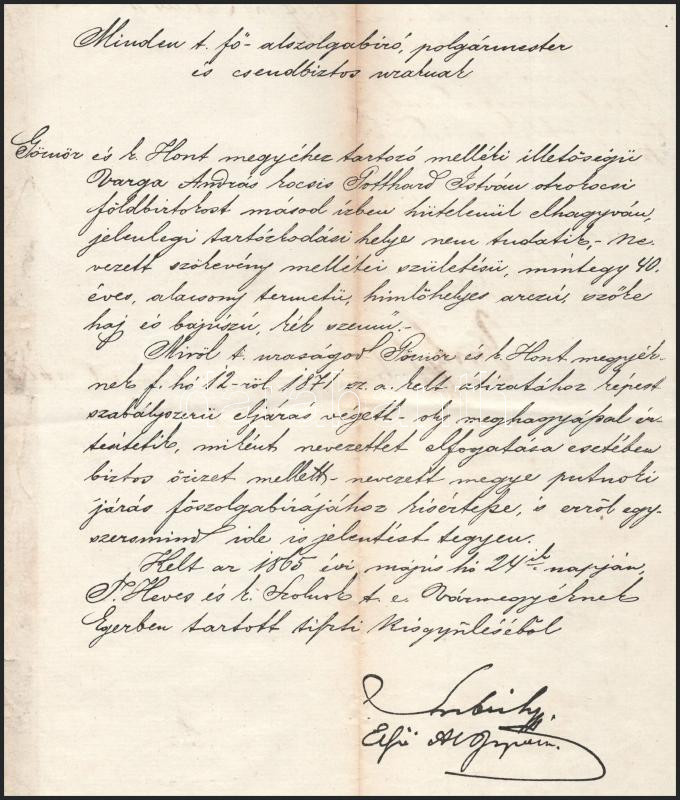 Minden t. fő- alszolgabiró, polgármester
és csendbiztos uraknak
Gömör és k. Hont megyéhez tartozó melléti illetőségü
Varga András kocsis Gotthard István otrokocsi
földbirtokost másod izben hütelenül elhagyván,
jelenlegi tartózkodási helye nem tudatik,- Ne-
vezett szökevény mellétei születésü, mintegy 40.
éves, alacsony termetü, himlőhelyes arczú, szőke
haj és bajúszú, kék szemű.-
Miről t. uraságod Gömör és k. Hont megyék-
nek f. hó 12-ről 1871 sz. a. kelt átiratához képest
szabályszerü eljárás végett - oly meghagyással ér-
tesitetik, miként nevezettet elfogatása esetében
biztos őrizet mellett - nevezett megye putnoki
járás főszolgabirájához kisértesse, is erről egy-
szersmind ide is jelentést tegyen.
Kelt az 1865 évi május hó 24ik napján,
T. Heves és k. Szolnok t. e. Vármegyéknek
Egerben tartott tiszti Kisgyüléséből
Első Al